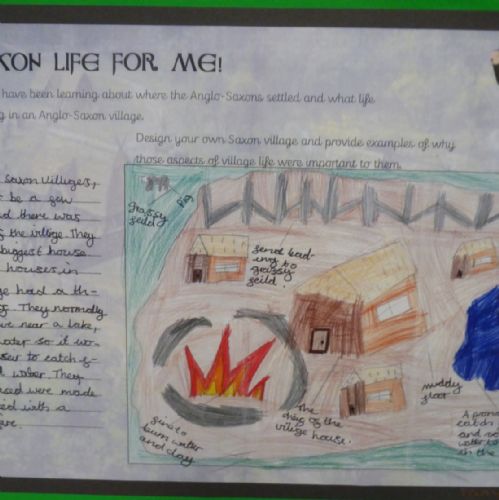 XON LIFE FOR ME!
have been learning about where the Anglo-Saxons settled and what life
g in an Anglo-Saxon village.
Design your own Saxon village and provide examples of why
those aspects of village life were important to them.
Saxon Villages,
be a
d there was
the village. They
biggest house
houses in
ge had a th-
They normally
ve near a lake,
water so it wo-
ser to catch f-
water. They
sed were made
ed with a
ire.
grassy
feild
pig
fence lead-
ing to
grassy
feild
fire to
burn water
and clay
The
of the
village house.
muddy
floor
A
catch
and
water to
in the